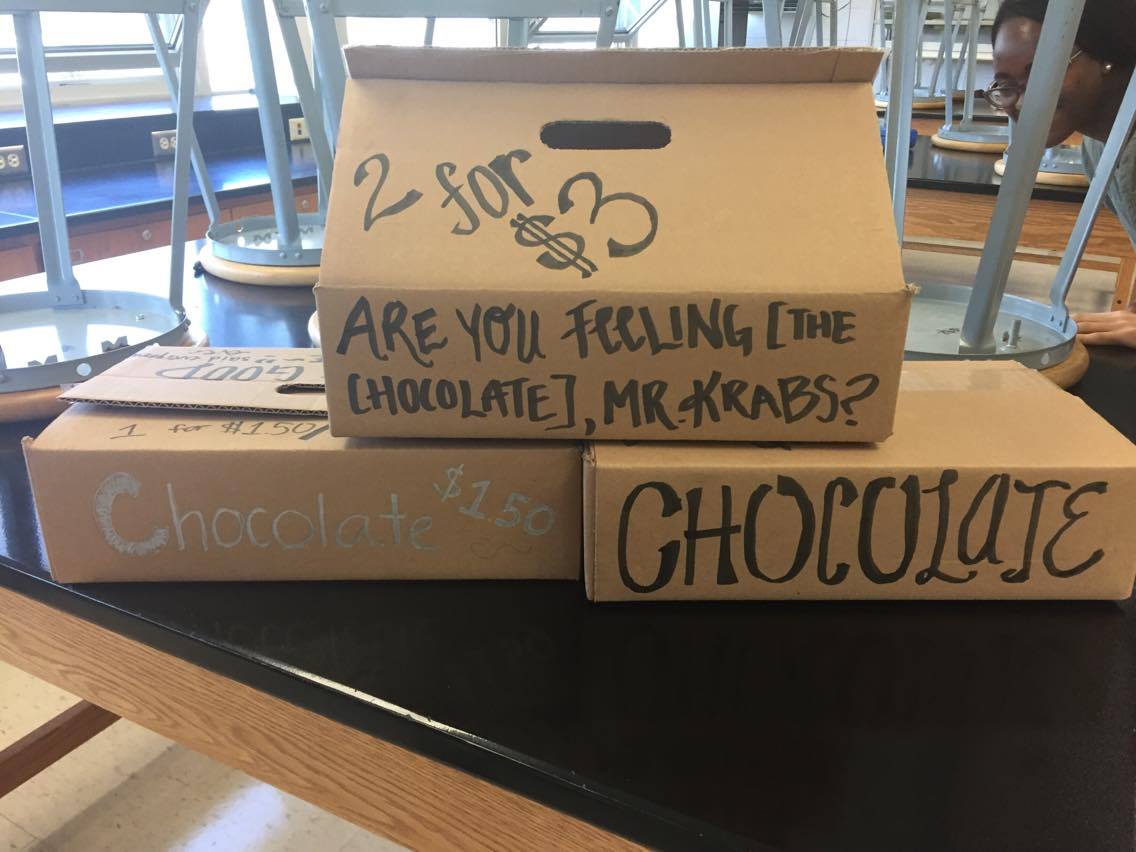 2 for
$3
ARE YOU FEELING [THE
CHOCOLATE], MR. KRABS?
GOOD
1 for $1.50/
Chocolate $1.50
CHOCOLATE